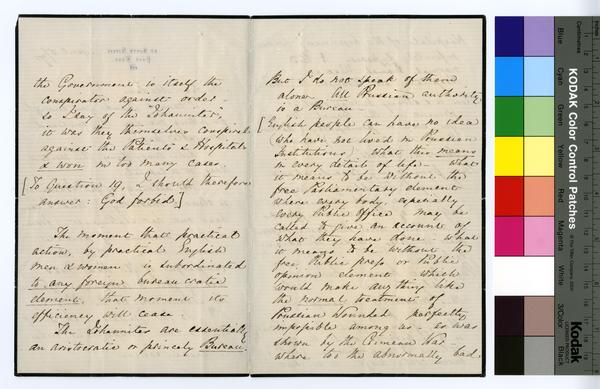 the Government is itself the
conspirator against order –
so I say of the Johanniter,
it was they themselves conspired
against the Patients & Hospitals
& won in too many cases.
[To Question 19, I should therefore
answer: God forbid.]
The moment that practical
action, by practical English
men & women is subordinated
to any foreign bureaucratic
element, that moment its
efficiency will cease.
The Johanniter are essentially
an aristocratic or princely Bureau.
But I do not speak of them
alone. All Prussian authority
is a Bureau.
[English people can have no idea
who have not lived in Prussian
Institutions, what this means
in every detail of life – what
it means to be without the
free Parliamentary element
where every body, especially
every Public Office may be
called to give an account of
what they have done – what
it means to be without the
free Public press or Public
opinion element which
would make any thing like
the normal treatment of
Prussian Wounded perfectly
impossible among us – as was
shown by the Crimean War –
where too the abnormally bad
KODAK Color Control Patches
Blue
Cyan
Green
Yellow
Red
Magenta
White
3/Color
Black
Centimetres
Kodak